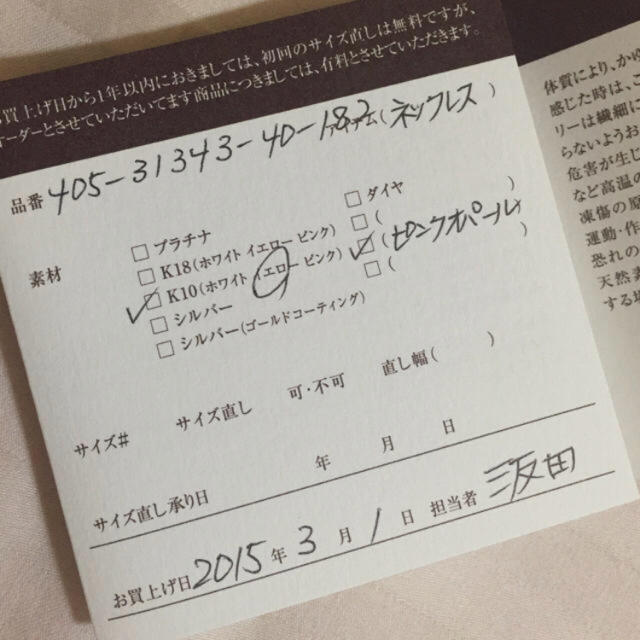 お買上げ日から1年以内におきましては、初回のサイズ直しは無料ですが、
オーダーとさせていただいてます商品につきましては、有料とさせていただきます。
品番 405-31343-40-182 (ネックレス)
素材
□ プラチナ
□ K18(ホワイト イエロー ピンク)
☑ K10(ホワイト イエロー ピンク)
□ シルバー
□ シルバー(ゴールドコーティング)
□ ダイヤ
□ ( )
☑ (ピンクオパール)
□ ( )
サイズ# サイズ直し 可・不可 直し幅( )
サイズ直し承り日 年 月 日
お買上げ日 2015 年 3 月 1 日 担当者 三坂田
体質により、かゆ
感じた時は、こ
リーは繊細に
らないようお
危害が生じ
など高温の
凍傷の原
運動・作
恐れの
天然素
する場